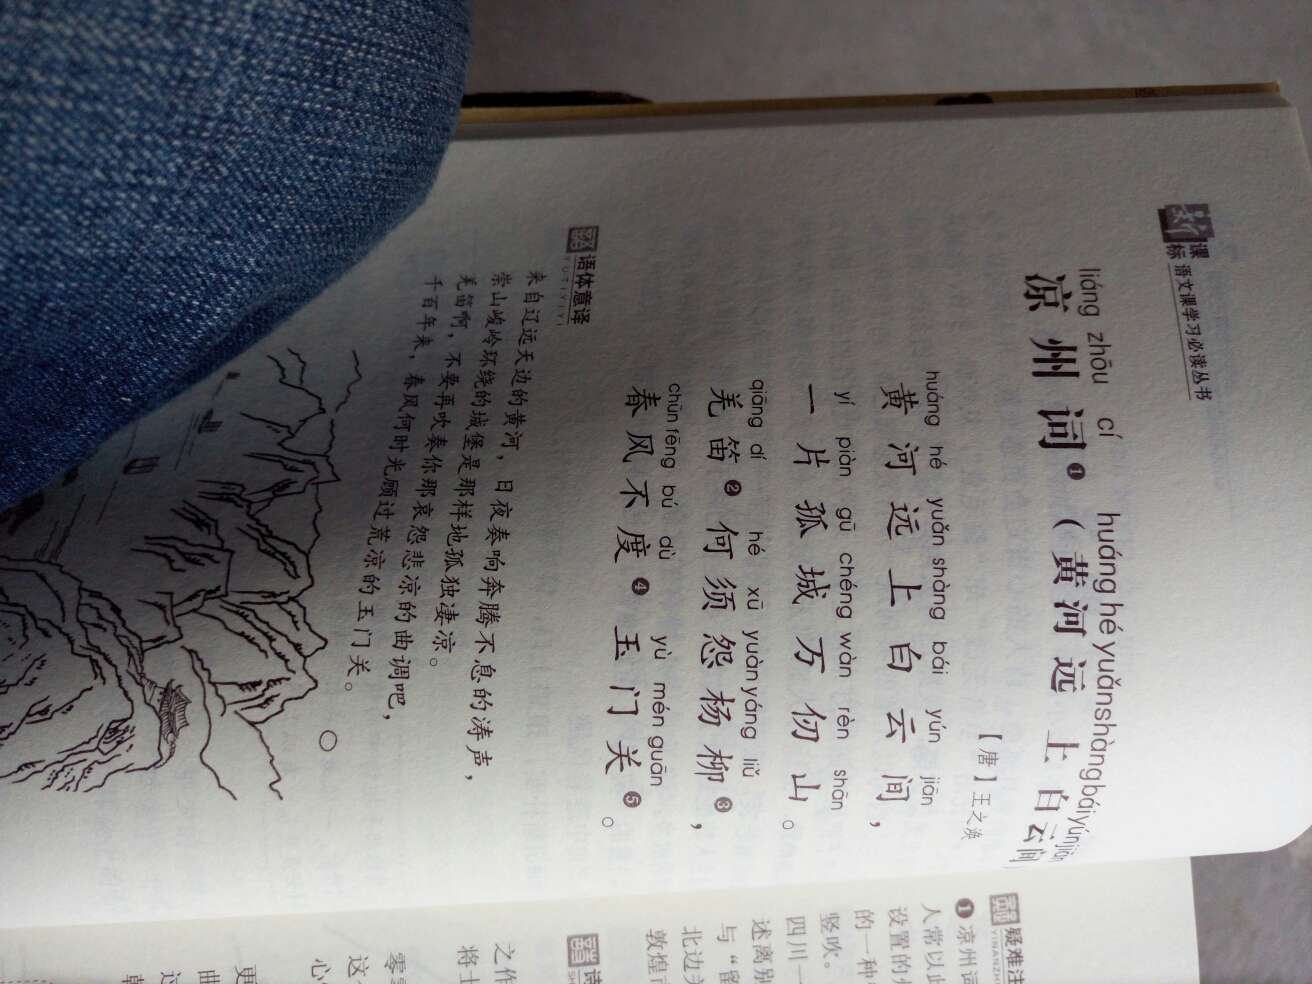 新课标 语文课学习必读丛书
liáng zhōu cí huáng hé yuǎn shàng bái yún jiān
凉州词❶（黄河远上白云间
【唐】王之涣
huáng hé yuǎn shàng bái yún jiān
黄河远上白云间，
yí piàn gū chéng wàn rèn shān
一片孤城万仞山。
qiāng dí hé xū yuàn yáng liǔ
羌笛❷何须怨杨柳❸，
chūn fēng bú dù yù mén guān
春风不度❹玉门关❺。
语体意译
YUTIYIYI
来自辽远天边的黄河，日夜奏响奔腾不息的涛声，
崇山峻岭环绕的城堡是那样地孤独凄凉。
羌笛啊，不要再吹奏你那哀怨悲凉的曲调吧，
千百年来，春风何时光顾过荒凉的玉门关。
疑难注
YINANZH
❶凉州词
人常以此
设置的
的一种
竖吹。
四川一
述离别
与“留
北边关
敦煌
诗
之作
将士
零
这
心
更
曲